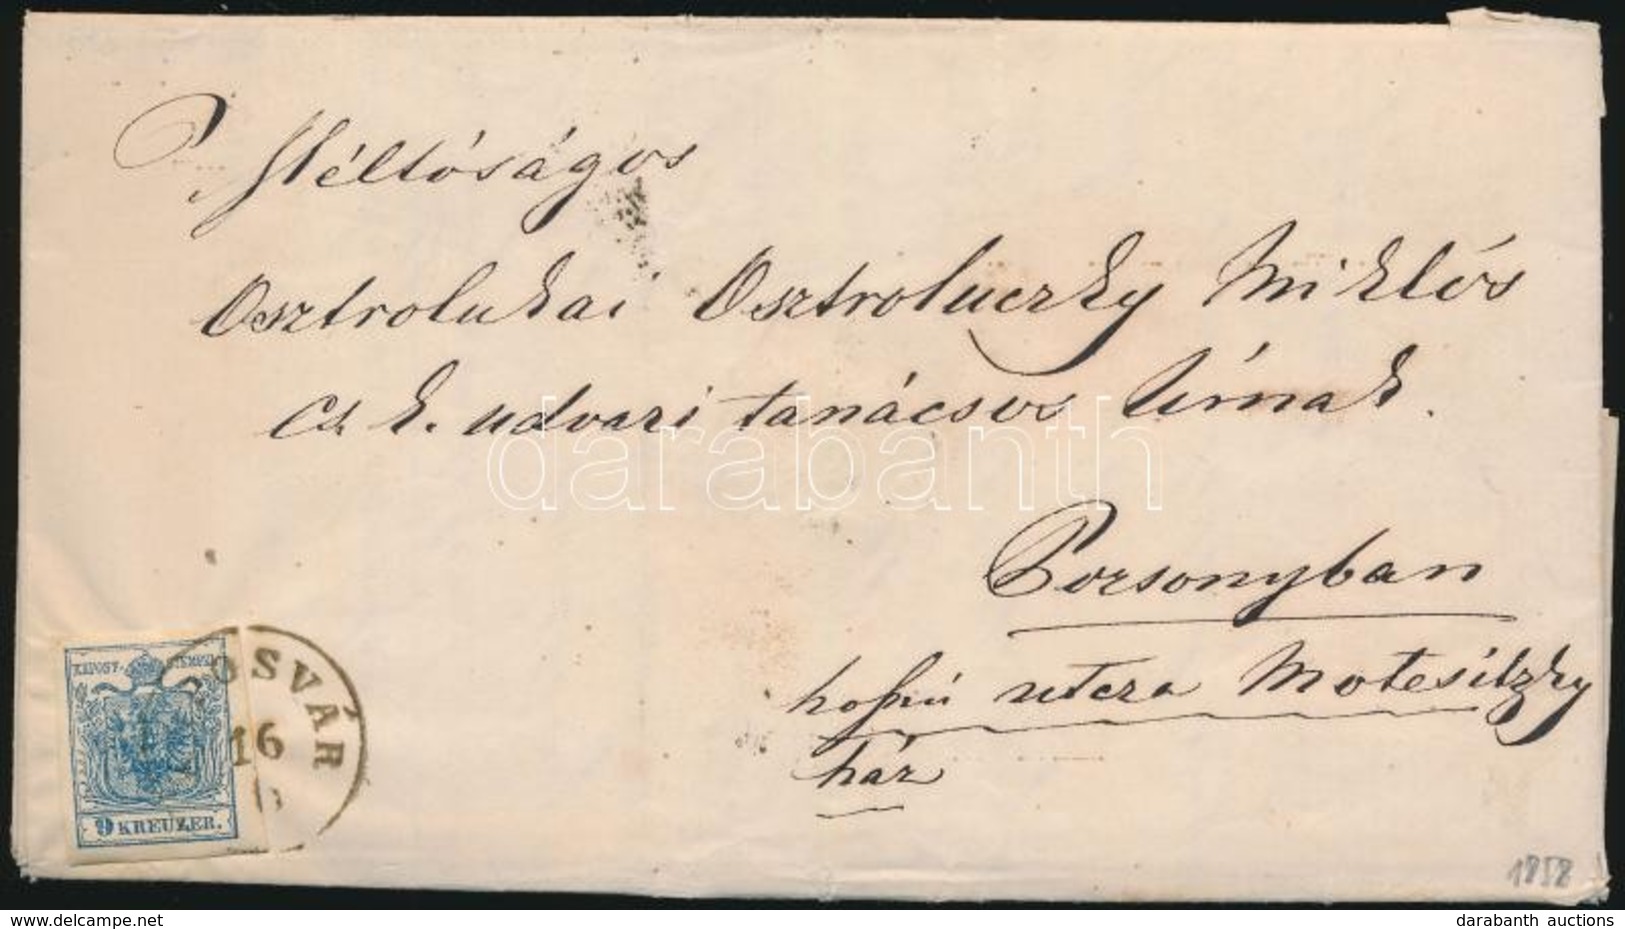 Méltóságos
Osztrolukai Osztroluczky Miklós
cs. k. udvari tanácsos Úrnak.
Posonyban
hoſszú utcza Motesitzky
ház
K.K.POST-STEMPEL
9 KREUZER.
OSVÁR
16
darabanth
1858
www.delcampe.net
darabanth auctions